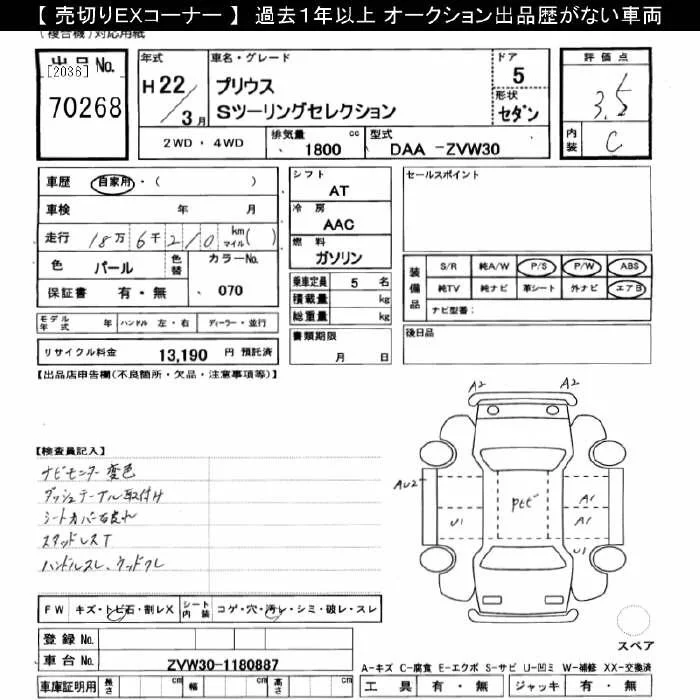 【 売切りEXコーナー 】 過去1年以上 オークション出品歴がない車両
(複合機)対応用紙
出品No.
[2036]
70268
年式
H22/3月
車名・グレード
プリウス
Sツーリングセレクション
ドア
5
形状
セダン
評価点
3.5
内装
C
2WD ・ 4WD
排気量
1800 cc
型式
DAA -ZVW30
車歴 自家用・( )
車検 年 月
走行 18万6千210 km マイル( )
色 パール 色替 カラーNo.
保証書 有・無 070
モデル年式 年 ハンドル 左・右 ディーラー・並行
リサイクル料金 13,190 円 預託済
シフト
AT
冷房
AAC
燃料
ガソリン
乗車定員 5 名
積載量 kg
総重量 kg
書類期限
月 日
セールスポイント
装備品
S/R 純A/W P/S P/W ABS
純TV 純ナビ 革シート 外ナビ エアB
ナビ型番:
後日品
【出品店申告欄(不良箇所・欠品・注意事項等)】
【検査員記入】
ナビモニター変色
ダッシュテーブル取付け
シートカバー右良れ
スタッドレスT
ハンドルスレ、ウッドクレ
A2 A2
AU2
Pトビ
U1
A1
A1
FW キズ・トビ石・割レX シート内装 コゲ・穴・汚レ・シミ・破レ・スレ
登録 No.
車台 No. ZVW30-1180887
車庫証明用 長さ cm 幅 cm 高さ cm
スペア
A-キズ C-腐食 E-エクボ S-サビ U-凹ミ W-補修 XX-交換済
工具 有・無 ジャッキ 有・無